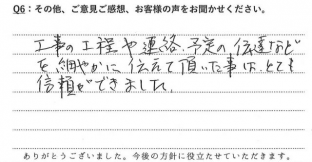 Q6：その他、ご意見ご感想、お客様の声をお聞かせください。
工事の工程や連絡、予定の伝達など
を細やかに伝えて頂いた事は、とても
信頼ができました。
ありがとうございました。今後の方針に役立たせていただきます。